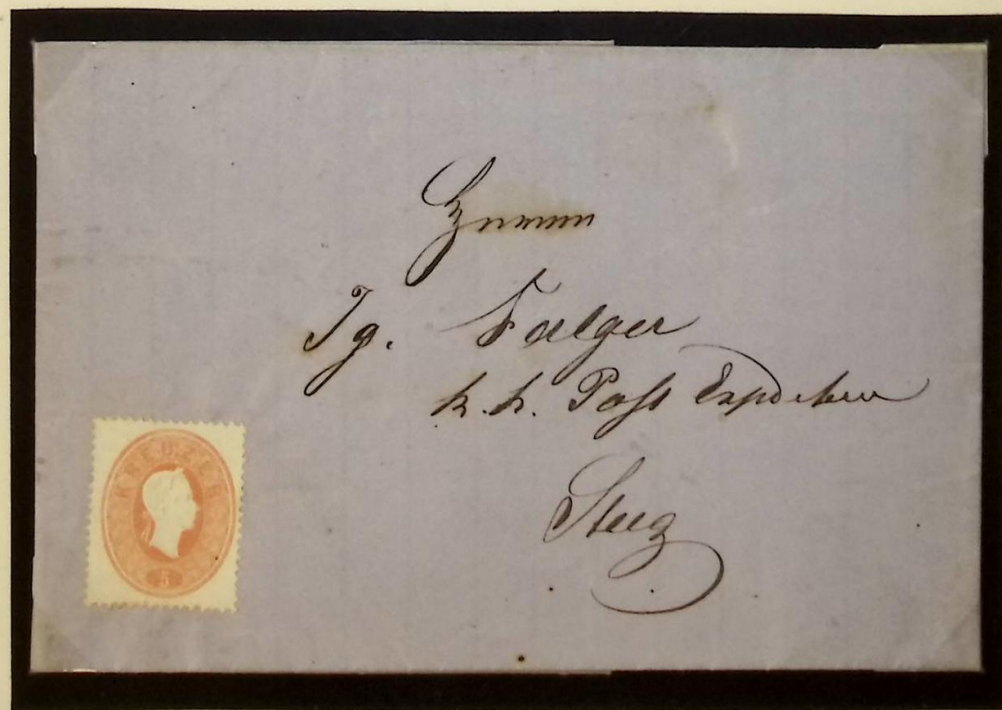 Herrn
Ig. Falger
k. k. Post Expditeur
Steeg
KREUZER
5